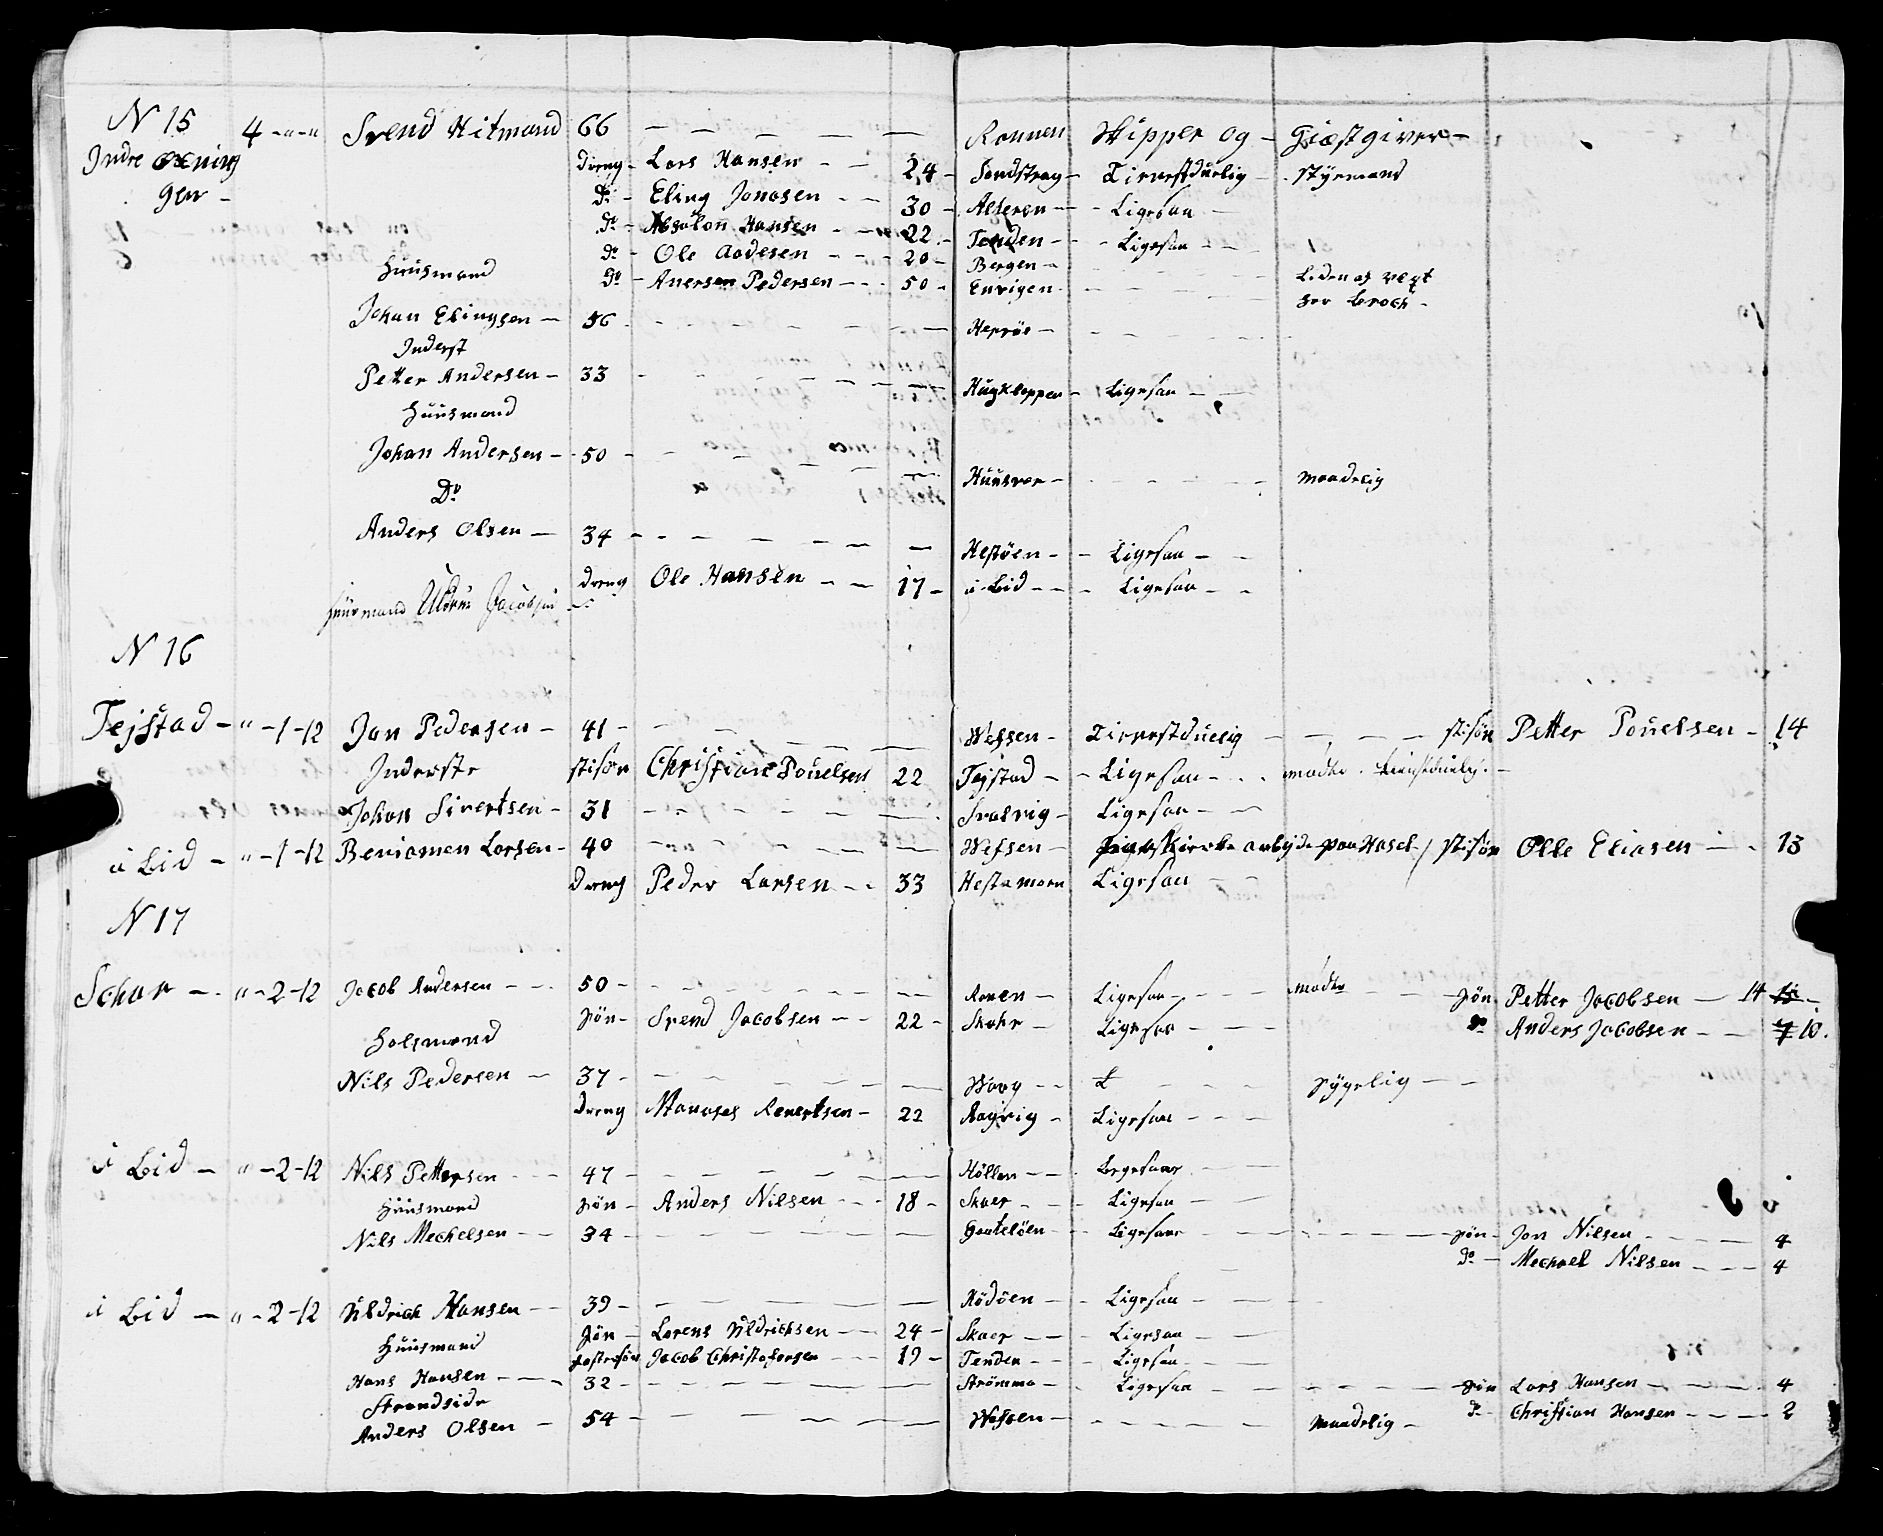 N 15 4 - " - " Svend Hitmand 66 — — — — — Rønnen Skipper og - Giæstgiver -
Indre Øxning Dreng - Lars Hansen - - 24 - Sandstrag - Tienestduelig - Styrmand
gen - Do - Eling Jonasen - - 30 - Alteren - - Ligesaa -
Do - Absalon Hansen - - 22 - Tenden - - Ligesaa - -
Do - Ole Andesen - - - 20 - Bergen -
Huusmand Do - Anersen Pedersen - - - 50 - Envigen - Liden af vext
har brock -
Johan Elingsen - 56 - - - - - Herøe -
Inderst
Petter Andersen - 33 - - - - - Hugkleppen - Ligesaa - -
Huusmand
Johan Andersen - 50 - - - - - Huusvær - - - - - maadelig
Do
Anders Olsen - 34 - - - - - Hestøen - - Ligesaa - -
Dreng Ole Hansen - - 17 - i Bid - - - Ligesaa - -
Huusmand Jacobsen
N 16
Tejstad - " - 1 - 12 Jan Pedersen - 41 - - - - - Wefsen - Tienestduelig - - - - stisøn Petter Pouelsen - 14
Inderste stisøn Christian Pouelsen 22 Tejstad - - Ligesaa - - -
Johan Sivertsen - 31 - - - - - Svalvig - Ligesaa - -
i Bid - " - 1 - 12 Beniamen Larsen - 40 - - - - - Wefsen - arbejde paa Hosel / stisøn Olle Eliasen - - 13
Dreng Peder Larsen - - 33 Hestemoen Ligesaa - -
N 17
Schar - - " - 2 - 12 Jacob Andersen - - - 50 - - - - - Rønen - Ligesaa - - - - - søn Petter Jacobsen - 14
søn - Svend Jacobsen - - 22 - Skahr - Ligesaa - - - Do Anders Jacobsen - - 10.
Holsmand
Nils Pedersen - 37 - - - - - Waag - - - - - Sygelig - -
Dreng Manases Revertsen - 22 Ragvig - Ligesaa - - -
i Bid - " - 2 - 12 Nils Pettersen - - - 47 - - - - - Høllen - - Ligesaa - -
Huusmand søn - Anders Nilsen - - - 18 - Skaer - - - Ligesaa - -
Nils Mechelsen - - 34 - - - - - Grateløen - - Ligesaa - - - - - søn - Jon Nilsen - - - - 4
Do - Mechael Nilsen - - - 4
i Bid - " - 2 - 12 Uldrich Hansen - - 39 - - - - - Rødøen - - Ligesaa - - -
Huusmand søn - Lorens Uldrichsen - - - 24 - Skaer - - - Ligesaa - -
fostersøn Jacob Christofersen - - - 19 - Tenden - - - Ligesaa - - -
Hans Hansen - - - - 32 - - - - - Strømmen - - Ligesaa - - - - - søn Lars Hansen - - - - 4
Strandside
Anders Olsen - 54 - - - - - Wefsen - - - - - maadelig - Do Christian Hansen - - - - 2